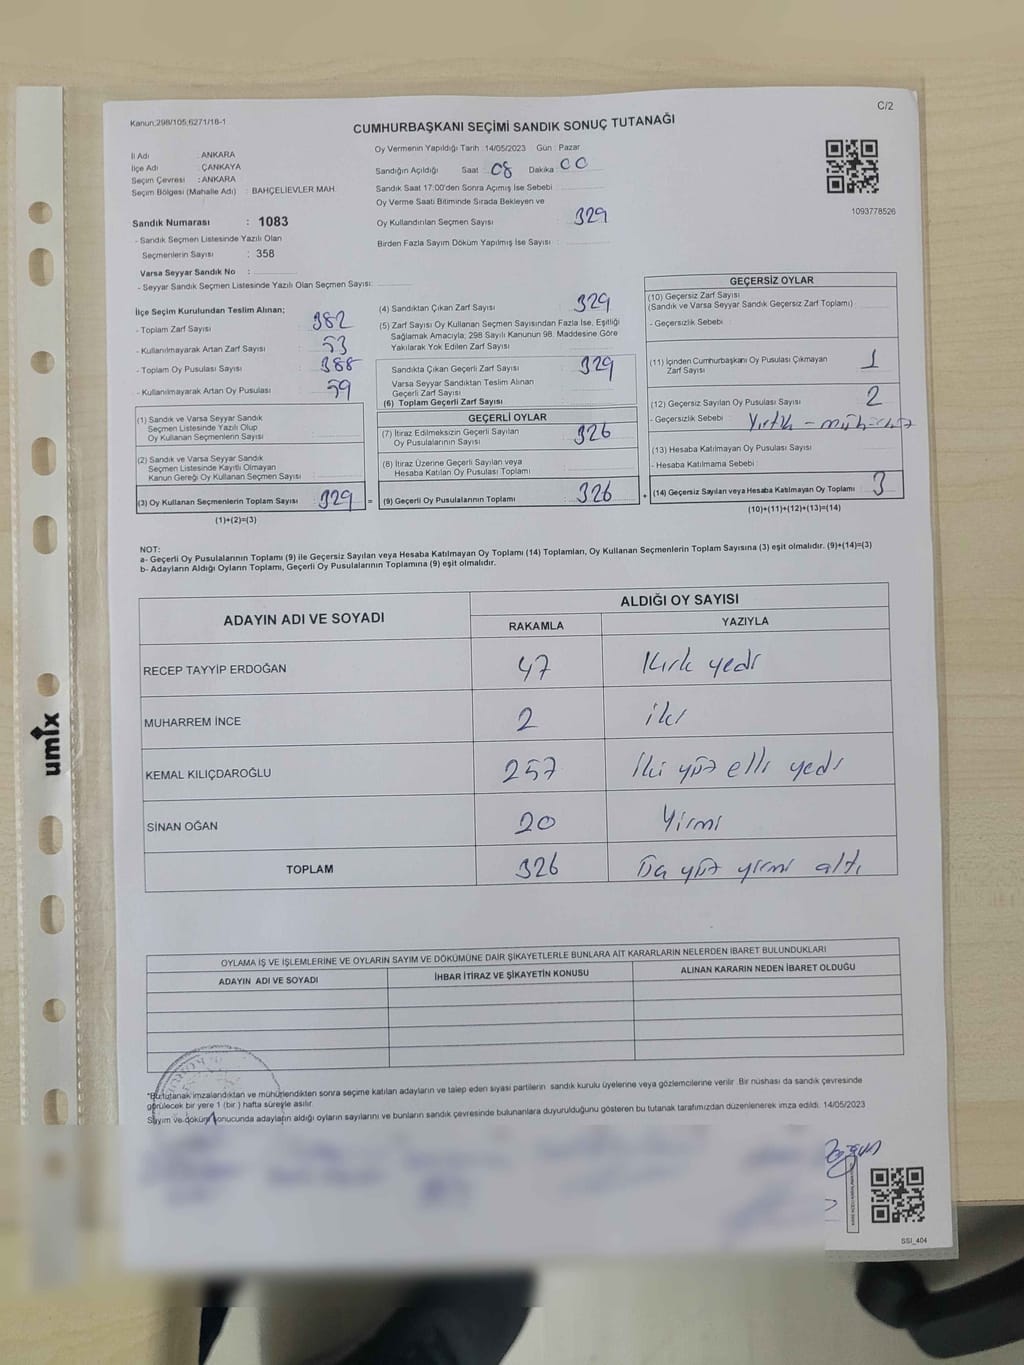 Kanun;298/105,6271/18-1
C/2
CUMHURBAŞKANI SEÇİMİ SANDIK SONUÇ TUTANAĞI
İl Adı : ANKARA
İlçe Adı : ÇANKAYA
Seçim Çevresi : ANKARA
Seçim Bölgesi (Mahalle Adı) : BAHÇELİEVLER MAH.
Sandık Numarası : 1083
- Sandık Seçmen Listesinde Yazılı Olan
Seçmenlerin Sayısı : 358
Varsa Seyyar Sandık No :
- Seyyar Sandık Seçmen Listesinde Yazılı Olan Seçmen Sayısı:
Oy Vermenin Yapıldığı Tarih : 14/05/2023 Gün : Pazar
Sandığın Açıldığı Saat 08 Dakika 00
Sandık Saat 17:00'den Sonra Açılmış İse Sebebi
Oy Verme Saati Bitiminde Sırada Bekleyen ve
Oy Kullandırılan Seçmen Sayısı : 329
Birden Fazla Sayım Döküm Yapılmış İse Sayısı :
1093778526
İlçe Seçim Kurulundan Teslim Alınan;
- Toplam Zarf Sayısı : 382
- Kullanılmayarak Artan Zarf Sayısı : 53
- Toplam Oy Pusulası Sayısı : 388
- Kullanılmayarak Artan Oy Pusulası : 59
(1) Sandık ve Varsa Seyyar Sandık
Seçmen Listesinde Yazılı Olup
Oy Kullanan Seçmenlerin Sayısı
(2) Sandık ve Varsa Seyyar Sandık
Seçmen Listesinde Kayıtlı Olmayan
Kanun Gereği Oy Kullanan Seçmen Sayısı
(3) Oy Kullanan Seçmenlerin Toplam Sayısı 329 =
(1)+(2)=(3)
(4) Sandıktan Çıkan Zarf Sayısı 329
(5) Zarf Sayısı Oy Kullanan Seçmen Sayısından Fazla İse, Eşitliği
Sağlamak Amacıyla; 298 Sayılı Kanunun 98. Maddesine Göre
Yakılarak Yok Edilen Zarf Sayısı
Sandıkta Çıkan Geçerli Zarf Sayısı : 329
Varsa Seyyar Sandıktan Teslim Alınan
Geçerli Zarf Sayısı
(6) Toplam Geçerli Zarf Sayısı
GEÇERLİ OYLAR
(7) İtiraz Edilmeksizin Geçerli Sayılan
Oy Pusulalarının Sayısı 326
(8) İtiraz Üzerine Geçerli Sayılan veya
Hesaba Katılan Oy Pusulası Toplamı
(9) Geçerli Oy Pusulalarının Toplamı 326 +
GEÇERSİZ OYLAR
(10) Geçersiz Zarf Sayısı
(Sandık ve Varsa Seyyar Sandık Geçersiz Zarf Toplamı)
- Geçersizlik Sebebi
(11) İçinden Cumhurbaşkanı Oy Pusulası Çıkmayan
Zarf Sayısı 1
(12) Geçersiz Sayılan Oy Pusulası Sayısı 2
- Geçersizlik Sebebi Yırtık -
(13) Hesaba Katılmayan Oy Pusulası Sayısı
- Hesaba Katılmama Sebebi
(14) Geçersiz Sayılan veya Hesaba Katılmayan Oy Toplamı 3
(10)+(11)+(12)+(13)=(14)
NOT:
a- Geçerli Oy Pusulalarının Toplamı (9) ile Geçersiz Sayılan veya Hesaba Katılmayan Oy Toplamı (14) Toplamları, Oy Kullanan Seçmenlerin Toplam Sayısına (3) eşit olmalıdır. (9)+(14)=(3)
b- Adayların Aldığı Oyların Toplamı, Geçerli Oy Pusulalarının Toplamına (9) eşit olmalıdır.
ADAYIN ADI VE SOYADI
ALDIĞI OY SAYISI
RAKAMLA YAZIYLA
RECEP TAYYİP ERDOĞAN 47 Kırk yedi
MUHARREM İNCE 2 iki
KEMAL KILIÇDAROĞLU 257 İki yüz elli yedi
SİNAN OĞAN 20 Yirmi
TOPLAM 326 Üç yüz yirmi altı
OYLAMA İŞ VE İŞLEMLERİNE VE OYLARIN SAYIM VE DÖKÜMÜNE DAİR ŞİKAYETLERLE BUNLARA AİT KARARLARIN NELERDEN İBARET BULUNDUKLARI
ADAYIN ADI VE SOYADI İHBAR İTİRAZ VE ŞİKAYETİN KONUSU ALINAN KARARIN NEDEN İBARET OLDUĞU
*Bu tutanak imzalandıktan ve mühürlendikten sonra seçime katılan adayların ve talep eden siyasi partilerin sandık kurulu üyelerine veya gözlemcilerine verilir. Bir nüshası da sandık çevresinde
görülecek bir yere 1 (bir) hafta süreyle asılır.
Sayım ve döküm sonucunda adayların aldığı oyların sayılarını ve bunların sandık çevresinde bulunanlara duyurulduğunu gösteren bu tutanak tarafımızdan düzenlenerek imza edildi. 14/05/2023
SSİ_404
umix